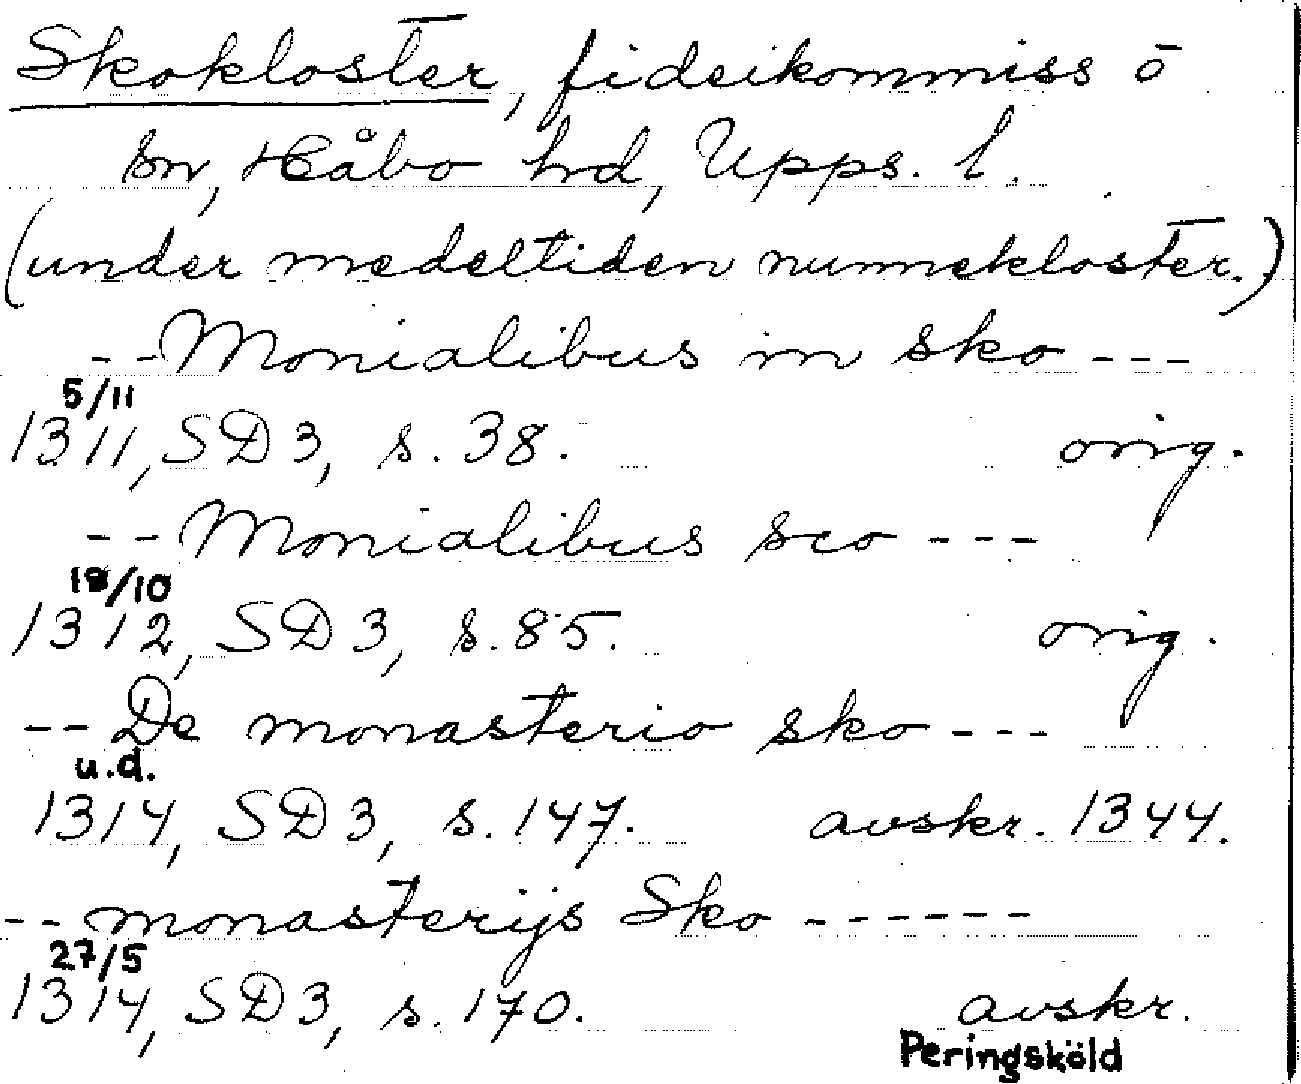 Skokloster, fideikommiss o
sn, Håbo hd, Upps. l.
(under medeltiden nunnekloster.)
-- Monialibus in sko ---
5/11
1311, SD 3, s. 38. orig.
-- Monialibus sco ---
18/10
1312, SD 3, s. 85. orig.
-- De monasterio sko ---
u.d.
1314, SD 3, s. 147. avskr. 1344.
-- monasterijs Sko ------
27/5
1314, SD 3, s. 170. avskr.
Peringsköld